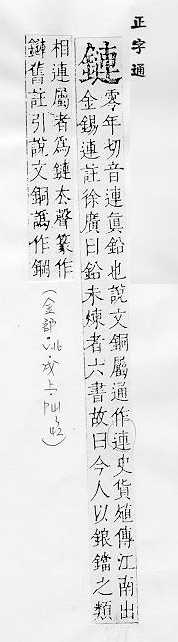 正字通
鏈
零年切音連眞鉛也說文銅屬通作連史貨殖傳江南出
金錫連註徐廣曰鉛未煉者六書故曰今人以鋃鐺之類
相連屬者爲鏈夶聲篆作
鏈舊註引說文銅譌作鋼
(金部 戌上